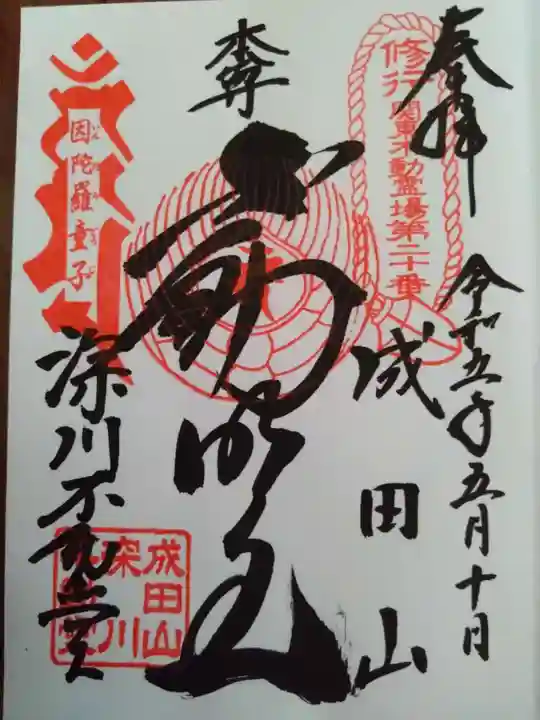 奉拝
令和五年五月十日
修行
関東不動霊場第二十番
成田山
本尊
不動明王
因陀羅童子
深川不動堂
成田山
深川